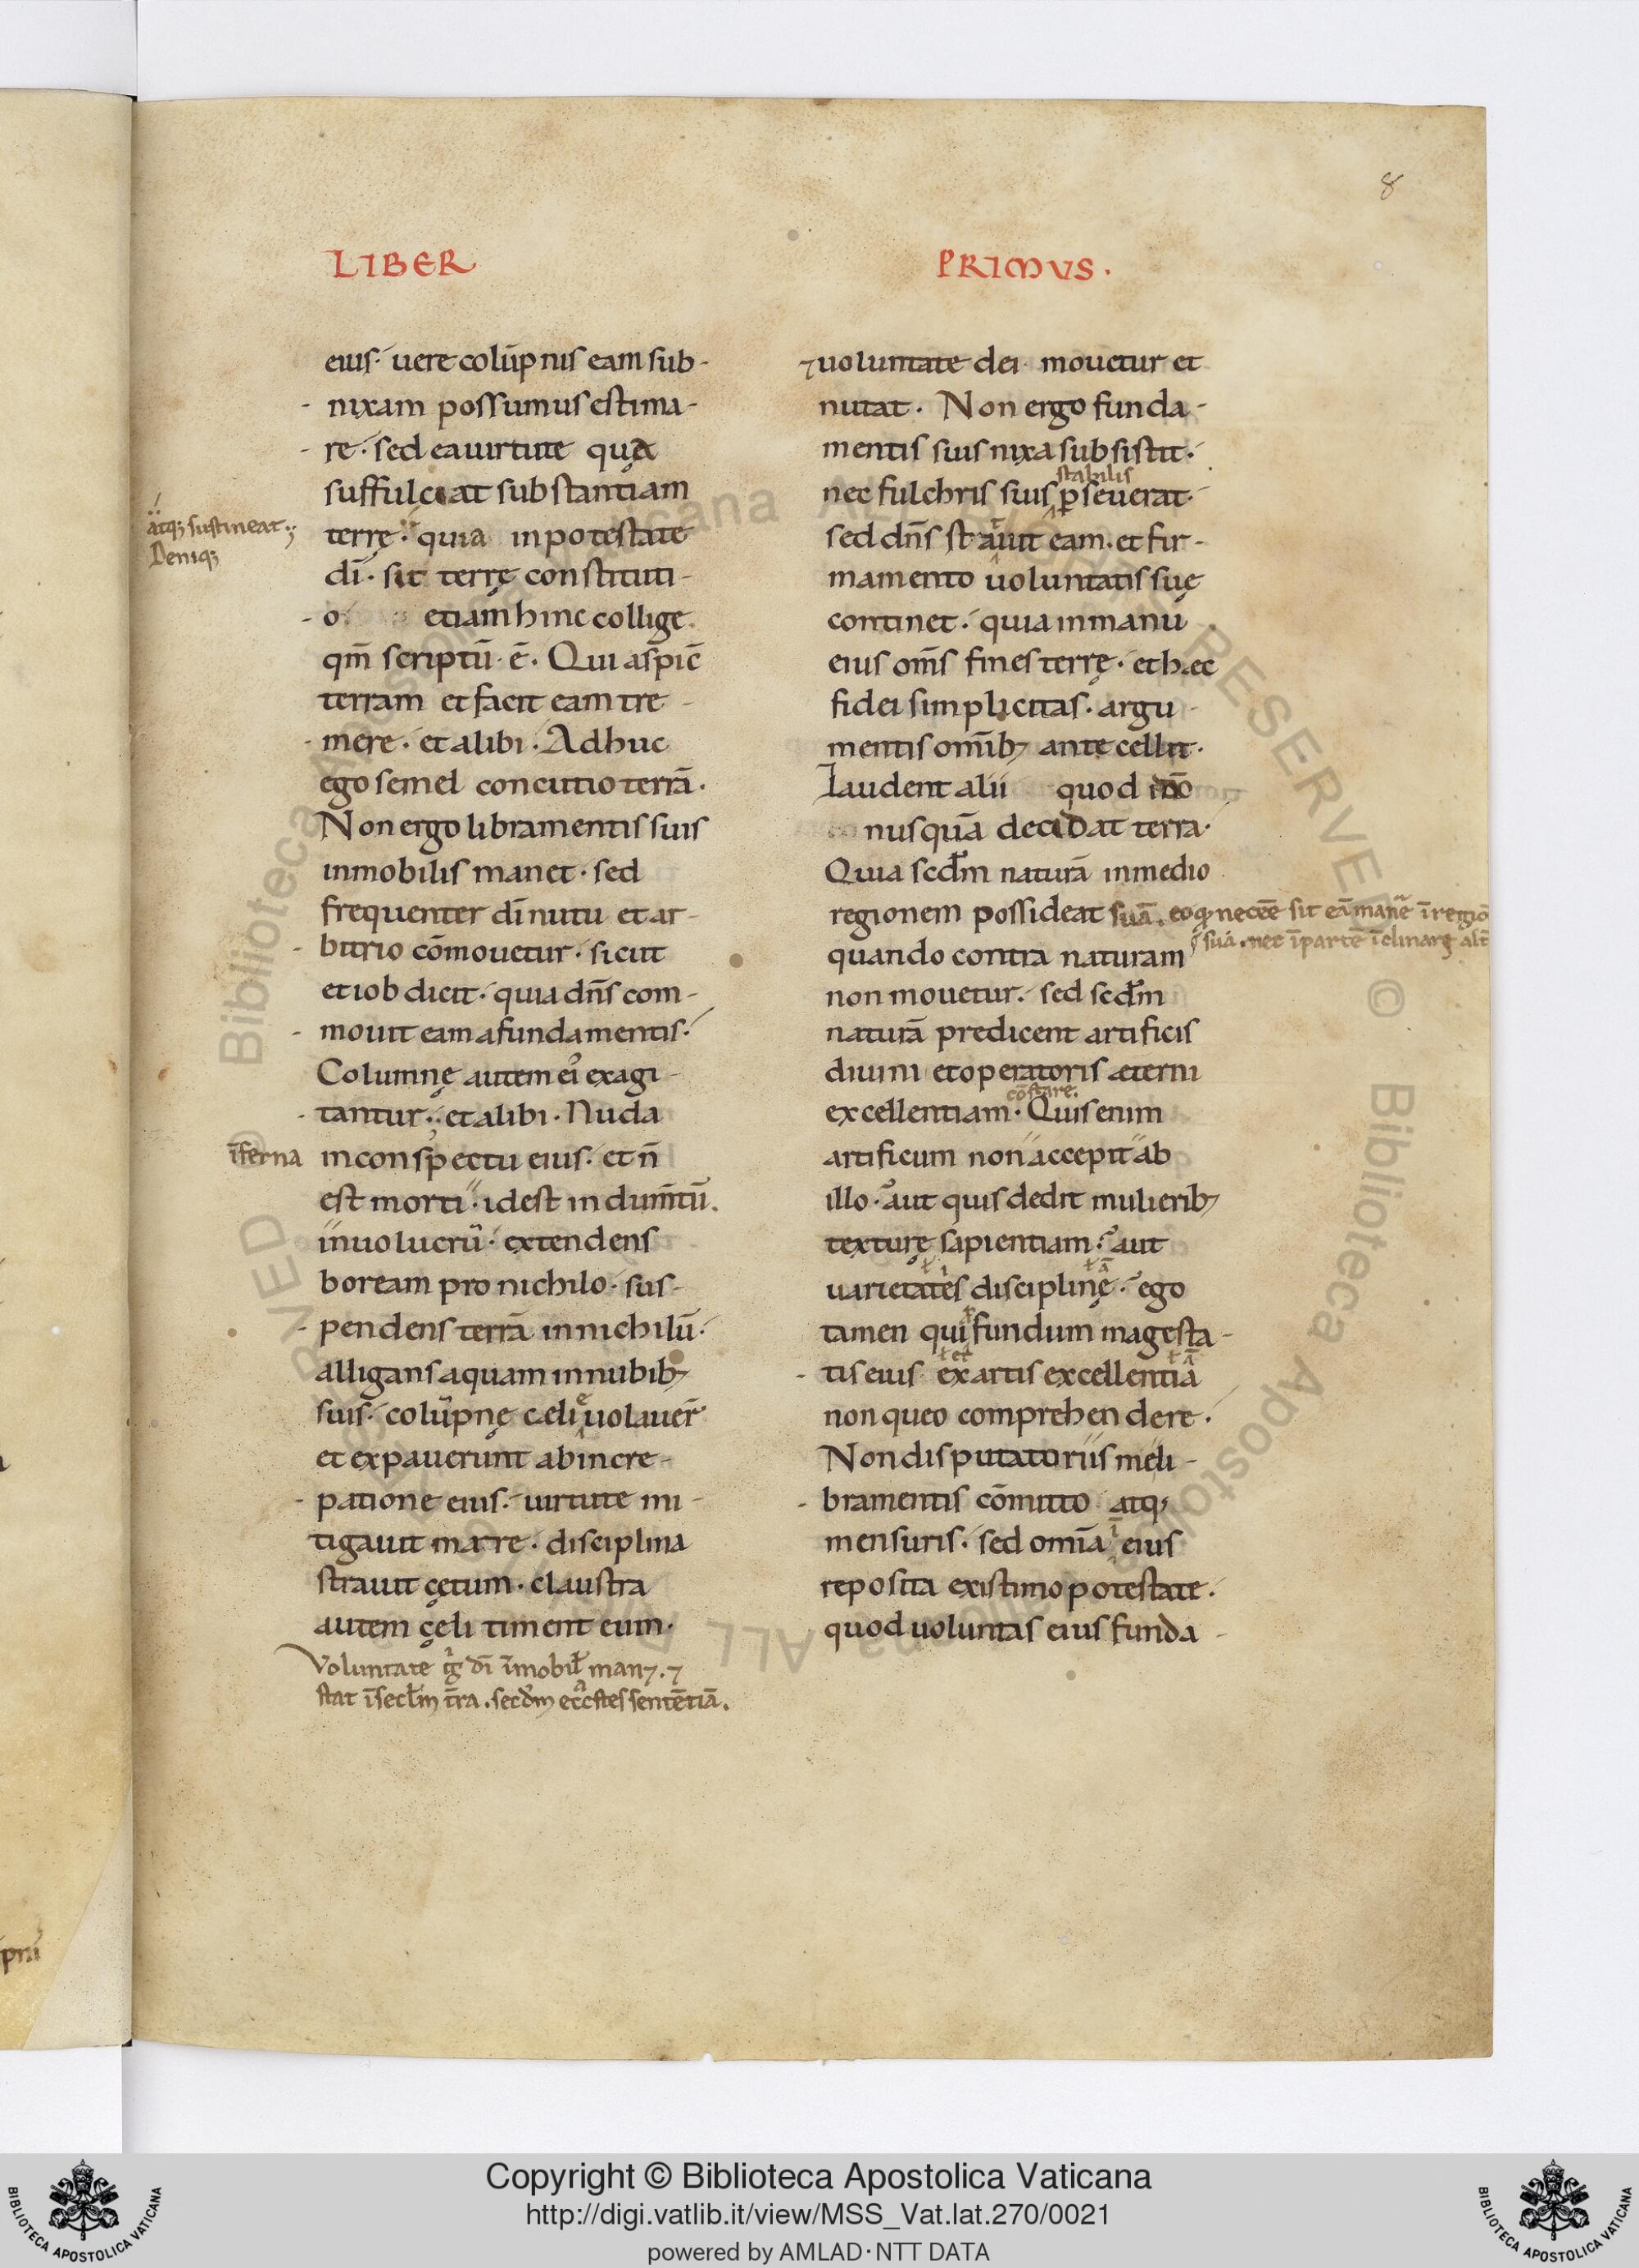 8
LIBER
eius· uere colūpnis eam sub-
nixam possumus estima-
re· sed ea uirtute quę
suffulciat substantiam
atq; sustineat·
Deniq;
terrę· quia in potestate
dī· sit terrę constituti-
o etiam hinc collige
qm̄ scriptū· ē· Qui aspic̄
terram et facit eam tre-
mere· et alibi· Adhuc
ego semel concutio terrā·
Non ergo libramentis suis
inmobilis manet· sed
frequenter dī nutu et ar-
bitrio cōmouetur· sicut
et iob dicit· quia dn̄s com-
mouit eam a fundamentis·
Columnę autem ei' exagi-
tantur· et alibi· Nuda
īferna
in conspectu eius· et n̄
est morti· idest indumtū·
inuolucrū· extendens
boream pro nichilo· sus-
pendens terrā in nichilū·
alligans aquam in nubib;
suis· colūpnę cęli uolauer̄
et expauerunt ab incre-
patione eius· uirtute mi-
tigauit mare· disciplina
strauit cętum· claustra
autem cęli timent eum·
Voluntate g dī īmobil man⁊· ⁊
stat ī sectm tra· secdm eccstes sentētiā·
PRIMUS·
⁊ uoluntate dei mouetur et
nutat· Non ergo funda-
mentis suis nixa subsistit·
stabilis
nec fulchris suis pseuerat·
sed dn̄s statuit eam· et fir-
mamento uoluntatis suę
continet· quia in manu
eius om̄s fines terrę· et hæc
fidei simplicitas· argu-
mentis omib; antecellit·
Laudent alii quod
nusquā decidat terra·
Quia scdm naturā in medio
regionem possideat suā· eoq; necēe sit eā manē ī regiō
suā· nec ī partē īclinarę alt
quando contra naturam
non mouetur· sed scdm
naturā predicent artificis
diuini et operatoris æterni
cōstare·
excellentiam· Quis enim
artificum non accepit ab
illo· aut quis dedit mulierib;
texturę sapientiam· aut
uarietates disciplinę· ego
tamen qui fundum magesta-
tis eius ex artis excellentia
non queo comprehendere·
Non disputatoriis me li-
bramentis cōmitto atq;
mensuris· sed omīa eius
reposita existimo potestate·
quod uoluntas eius funda-
Copyright © Biblioteca Apostolica Vaticana
http://digi.vatlib.it/view/MSS_Vat.lat.270/0021
powered by AMLAD·NTT DATA
BIBLIOTECA APOSTOLICA VATICANA
BIBLIOTECA APOSTOLICA VATICANA